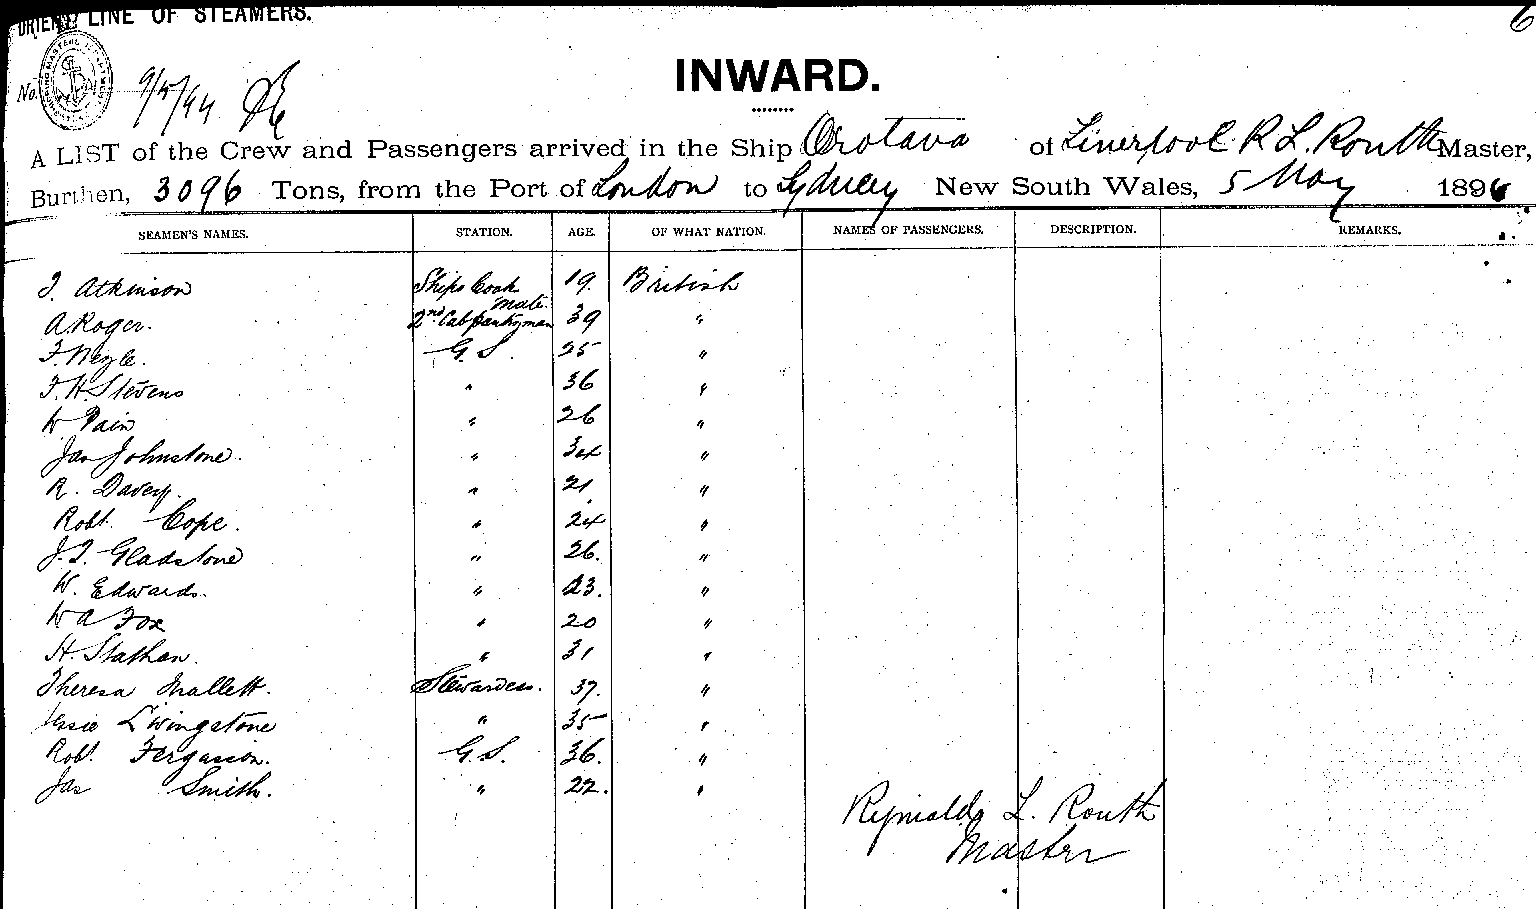 ORIENT LINE OF STEAMERS.
6
No. 9/5/94
INWARD.
A LIST of the Crew and Passengers arrived in the Ship Orotava of Liverpool R L. Routh Master,
Burthen, 3096 Tons, from the Port of London to Sydney New South Wales, 5 May 189
SEAMEN'S NAMES. STATION. AGE. OF WHAT NATION. NAMES OF PASSENGERS. DESCRIPTION. REMARKS.
J. Atkinson Ships Cook Mate 19. British
A Roger. 2nd Cab pantryman 39 "
G.S. 25 "
F. H. Stevens " 36 "
W Pain " 26 "
Jas Johnstone. " 34 "
R. Davey. " 21 "
Robt. Cope. " 24 "
J. T. Gladstone " 26. "
W. Edwards. " 23. "
W A Fox " 20 "
H. Stathan. " 31 "
Theresa Mallett. Stewardess. 37. "
Jessie Livingstone " 35 "
Robt. Ferguson. G.S. 36. "
Jas Smith. " 22. "
Reginald L. Routh
Master